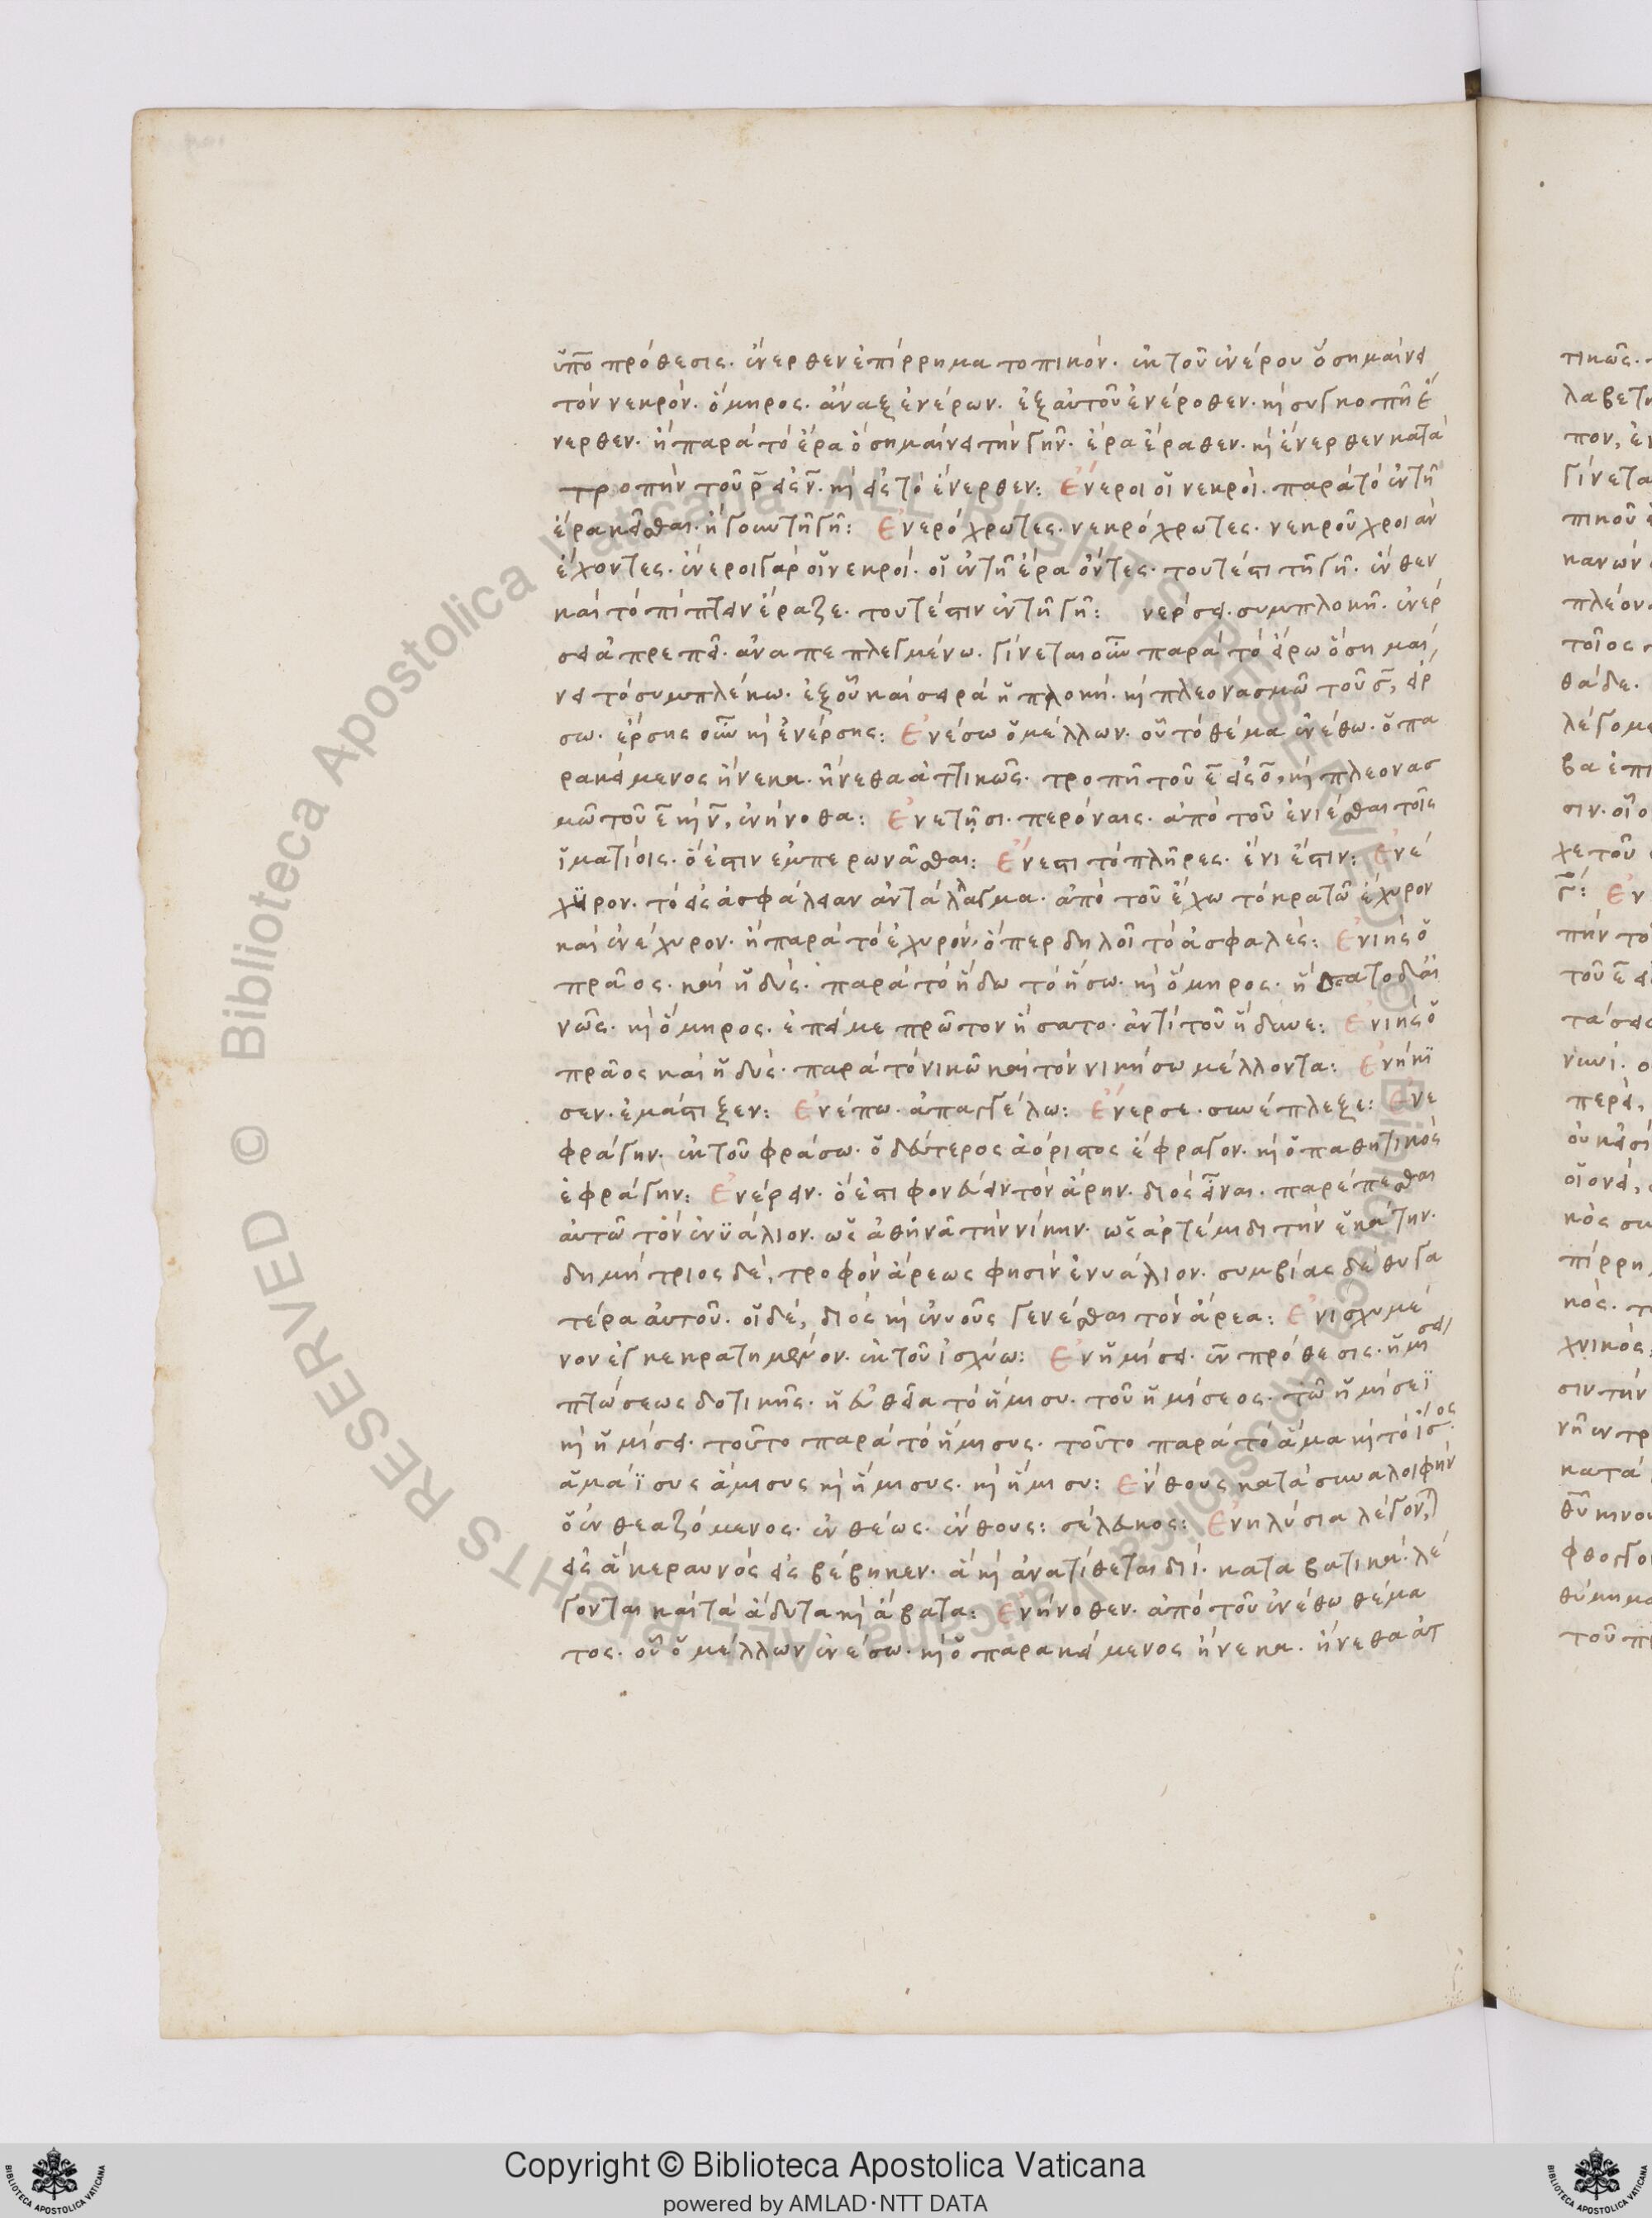 ὑπὸ πρόθεσις. ἔνερθεν ἐπίρρημα τοπικόν. ἐκ τοῦ ἐνέρου ὃ σημαίνει
τὸν νεκρόν. ὅμηρος. ἄναξ ἐνέρων. ἐξ αὐτοῦ ἐνέροθεν. καὶ συγκοπῆ ἔ
νερθεν. ἢ παρὰ τὸ ἔρα ὃ σημαίνει τὴν γῆν. ἔρα ἔραθεν. καὶ ἔνερθεν κατὰ
τροπὴν τοῦ ρ εἰς ν. καὶ εἰς τὸ ἔνερθεν: Ἔνεροι οἱ νεκροί. παρὰ τὸ ἐν τῆ
ἔρα κεῖσθαι. ἤγουν τῆ γῆ: Ἐνερόχρωτες. νεκρόχρωτες. νεκροῦ χροιὰν
ἔχοντες. ἔνεροι γὰρ οἱ νεκροί. οἱ ἐν τῆ ἔρα ὄντες. τουτέστι τῆ γῆ. ἔνθεν
καὶ τὸ πίπτειν ἔραζε. τουτέστιν ἐν τῆ γῆ: νερσει. συμπλοκῆ. ἐνερ
σει ἀπρεπεῖ. ἀναπεπλεγμένω. γίνεται οὖν παρὰ τὸ εἴρω ὃ σημαί
νει τὸ συμπλέκω. ἐξ οὗ καὶ σειρὰ ἡ πλοκή. καὶ πλεονασμῶ τοῦ σ, εἴρ
σω. ἔρσης οὖν καὶ ἐνέρσης: Ἐνέσω ὁ μέλλων. οὗ τὸ θέμα ἐνέθω. ὁ πα
ρακείμενος ἤνεκα. ἤνεθα ἀττικῶς. τροπῆ τοῦ ε εἰς ο, καὶ πλεονασ
μῶ τοῦ ε καὶ ν, ἐνήνοθα: Ἐνετῆσι. περόναις. ἀπὸ τοῦ ἐνιέσθαι τοῖς
ἱματίοις. ὅ ἐστιν ἐμπερωνᾶσθαι: Ἔνεστι τὸ πλῆρες. ἔνι ἐστιν: Ἐνέ
χυρον. τὸ εἰς ἀσφάλειαν ἀντάλλαγμα. ἀπὸ τοῦ ἔχω τὸ κρατῶ ἔχυρον
καὶ ἐνέχυρον. ἢ παρὰ τὸ ἐχυρόν, ὅπερ δηλοῖ τὸ ἀσφαλές: Ἐνιης ὁ
πρᾶος. καὶ ἡδύς. παρὰ τὸ ἥδω τὸ ἥσω. καὶ ὅμηρος. ἥσατο δ' αἰ
νῶς. καὶ ὅμηρος. ἐπεί με πρῶτον ἥσατο. ἀντὶ τοῦ ἥδυνε: Ἐνιης ὁ
πρᾶος καὶ ἡδύς. παρὰ τὸ νικῶ καὶ τὸν νικήσω μέλλοντα: Ἐνήκι
σεν. ἐμάστιξεν: Ἐνέπω. ἀπαγγέλω: Ἔνερσε. συνέπλεξε: Ἐνε
φράγην. ἐκ τοῦ φράσω. ὁ δεύτερος ἀόριστος ἔφραγον. καὶ ὁ παθητικὸς
ἐφράγην: Ἐνέρειν. ὅ ἐστι φονεύειν τὸν ἄρην. διὸς εἶναι. παρέπεσθαι
αὐτῶ τὸν ἐνυάλιον. ὡς ἀθηνᾶ τὴν νίκην. ὡς ἀρτέμιδι τὴν ἑκάτην.
δημήτριος δέ, τροφὸν ἄρεως φησὶν ἐνυάλιον. συμβίας δὲ θυγα
τέρα αὐτοῦ. οἱ δέ, διὸς καὶ ἐνυοῦς γενέσθαι τὸν ἄρεα: Ἐνισχυμέ
νον ἐγκεκρατημένον. ἐκ τοῦ ἰσχύω: Ἐν ἡμίσει. ἐν πρόθεσις. ἡμίσει
πτώσεως δοτικῆς. ἡ εὐθεῖα τὸ ἥμισυ. τοῦ ἡμίσεος. τῶ ἡμίσεϊ
καὶ ἡμίσει. τοῦτο παρὰ τὸ ἥμισυς. τοῦτο παρὰ τὸ ἅμα καὶ τὸ ἴσος.
ἅμαϊσυς ἅμισυς καὶ ἥμισυς. καὶ ἥμισυ: Ἔνθους κατὰ συναλοιφὴν
ὁ ἐνθεαζόμενος. ἐνθέως. ἔνθους: σέλευκος: Ἐνηλύσια λέγονται
εἰς ἃ κεραυνὸς εἰς βέβηκεν. ἃ καὶ ἀνατίθεται διΐ. καταβατικά. λέ
γονται καὶ τὰ ἄδυτα καὶ ἄβατα: Ἐνήνοθεν. ἀπὸ τοῦ ἐνέθω θέμα
τος. οὗ ὁ μέλλων ἐνέσω. καὶ ὁ παρακείμενος ἤνεκα. ἤνεθα ἀτ
Copyright © Biblioteca Apostolica Vaticana
powered by AMLAD·NTT DATA